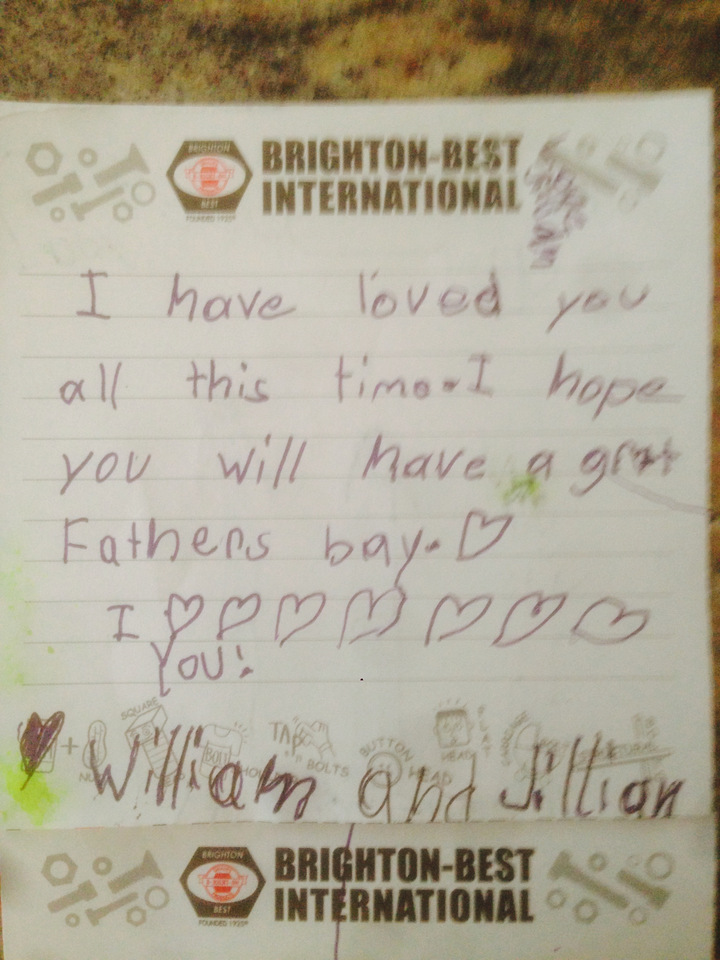 BRIGHTON
BEST
FOUNDED 1925
BRIGHTON-BEST
INTERNATIONAL
I have loved you
all this time. I hope
you will have a grat
Fathers bay. ♡
I ♡ ♡ ♡ ♡ ♡ ♡ ♡
You!
SQUARE
TAP
BOLTS
BUTTON
HEAD
HEAD
BOLT
William and Jillian
BRIGHTON
BEST
FOUNDED 1925
BRIGHTON-BEST
INTERNATIONAL